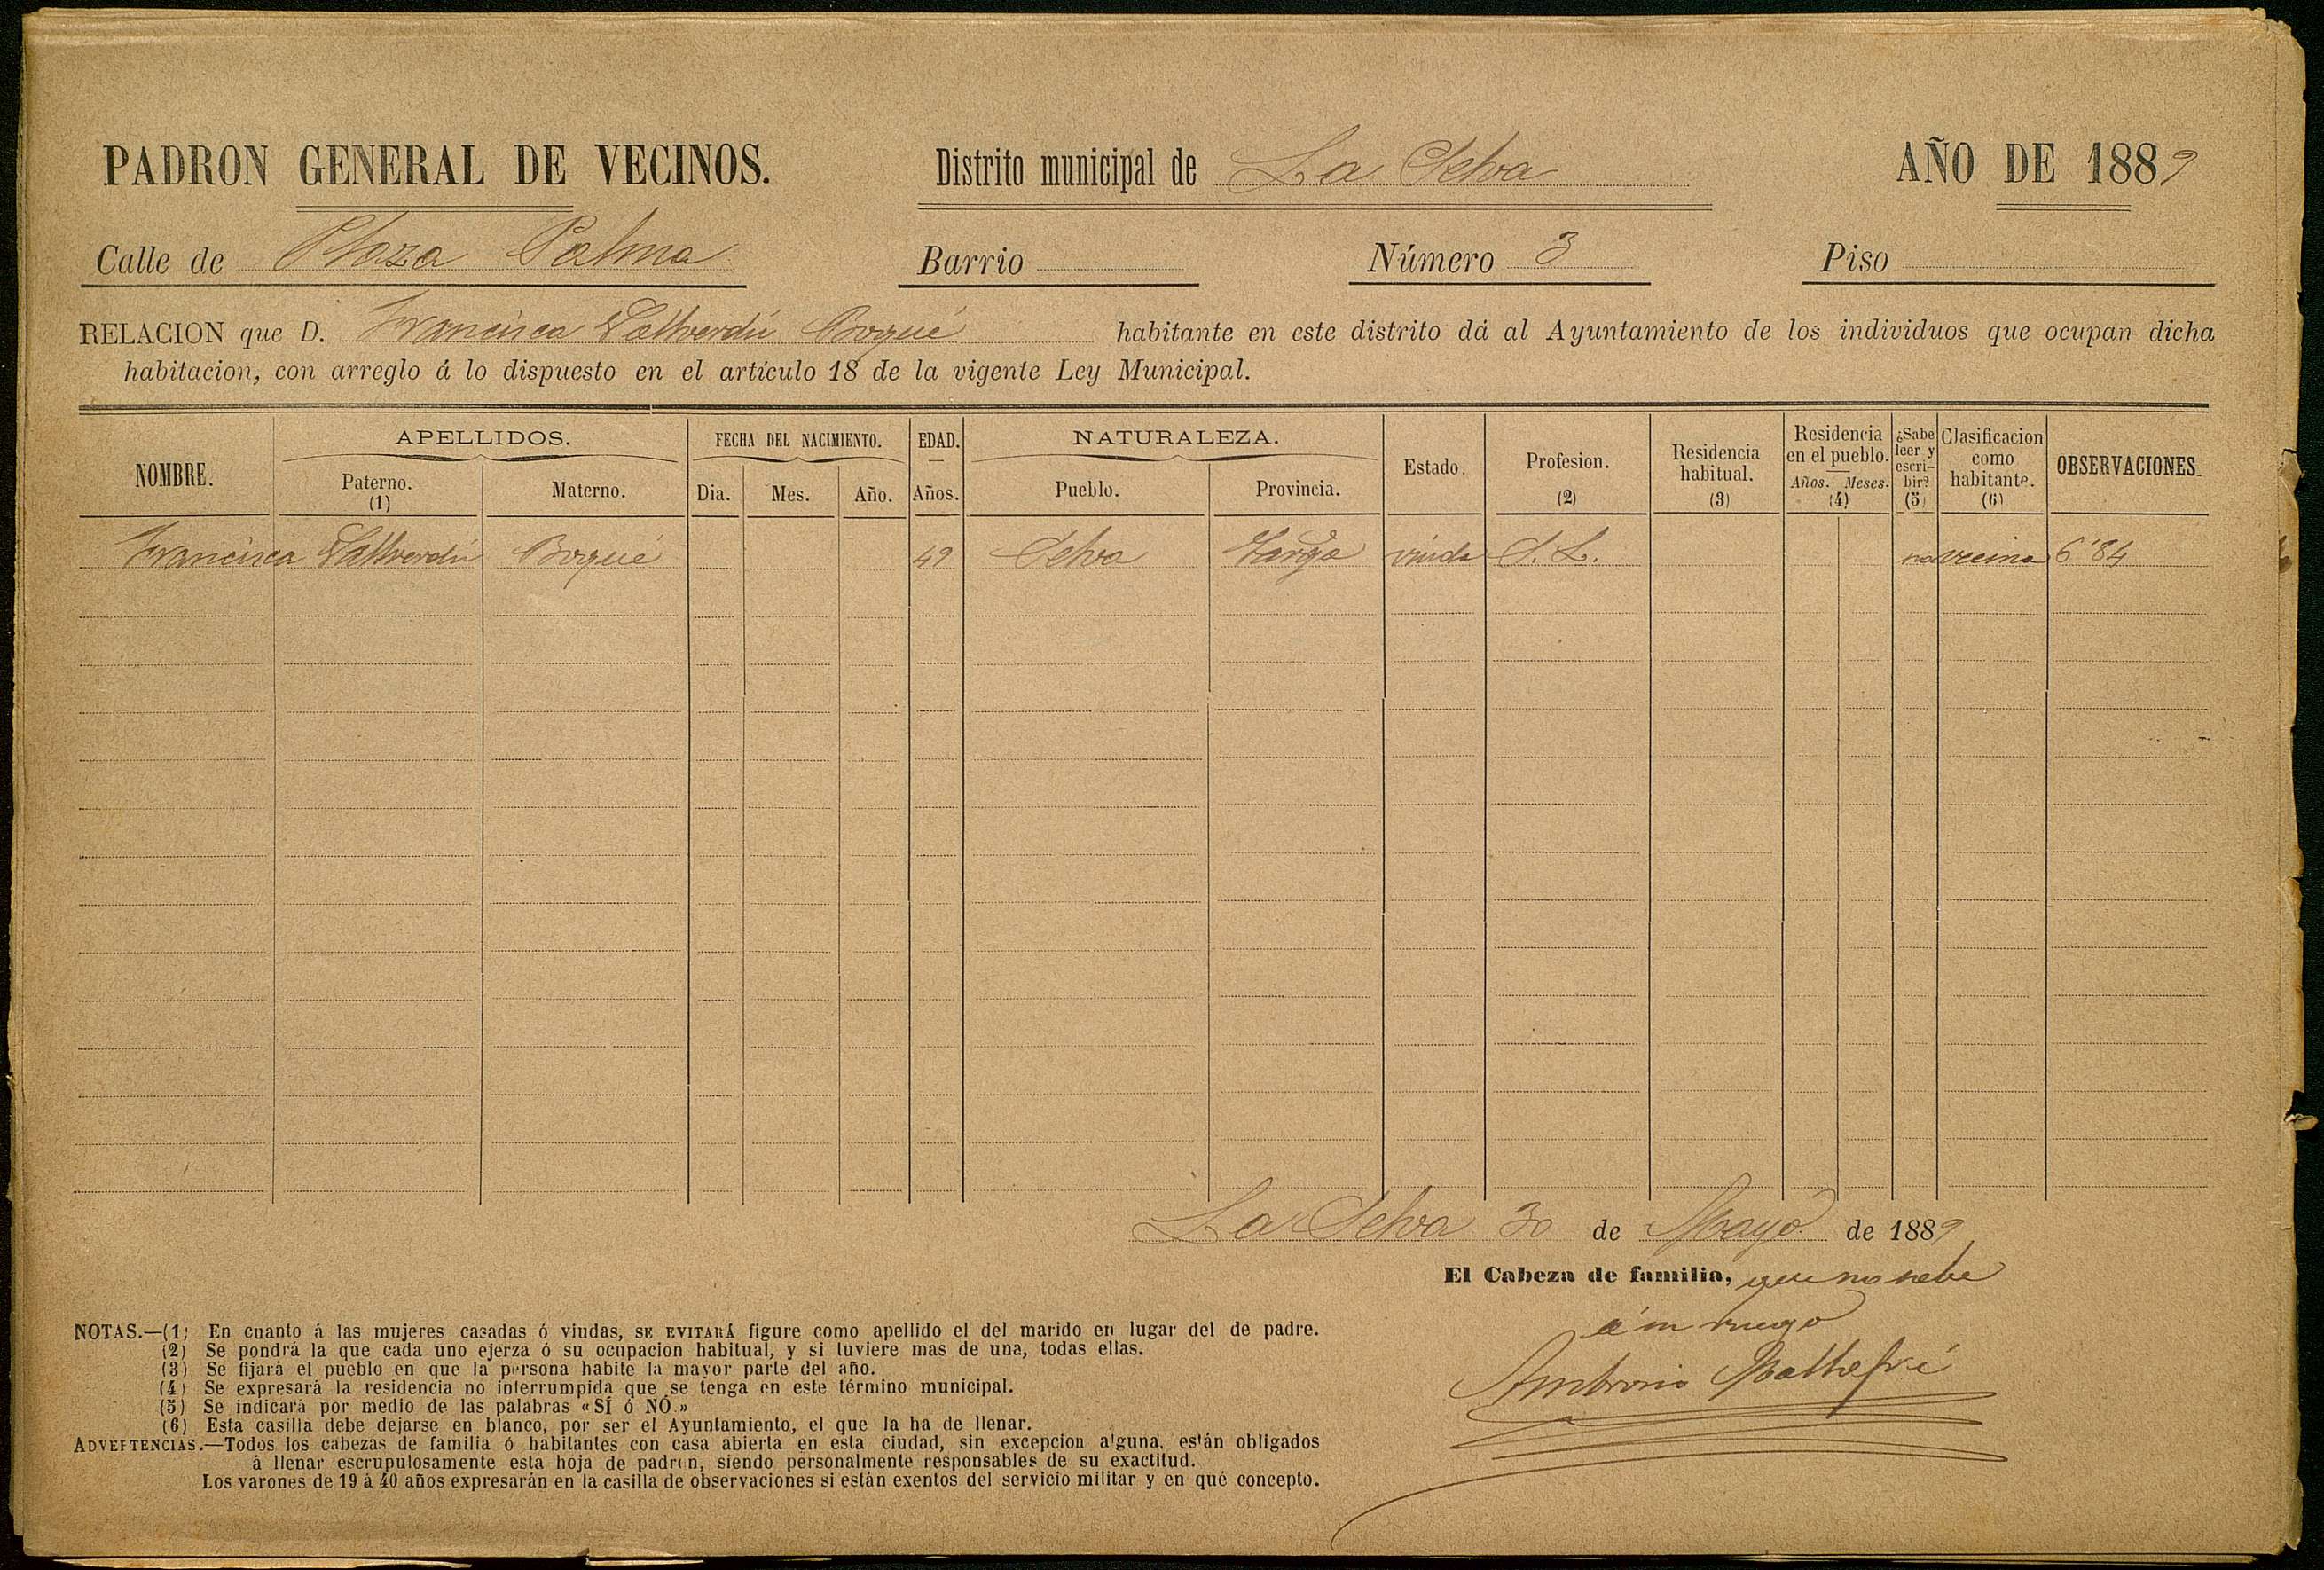 PADRON GENERAL DE VECINOS. Distrito municipal de La Selva AÑO DE 1889
Calle de Plaza Palma Barrio Número 3 Piso
RELACION que D. Francisca Vallverdú Borqué habitante en este distrito dá al Ayuntamiento de los individuos que ocupan dicha
habitacion, con arreglo á lo dispuesto en el artículo 18 de la vigente Ley Municipal.
NOMBRE. APELLIDOS. Paterno. (1) Materno. FECHA DEL NACIMIENTO. Dia. Mes. Año. EDAD. Años. NATURALEZA. Pueblo. Provincia. Estado. Profesion. (2) Residencia habitual. (3) Residencia en el pueblo. Años. Meses. (4) ¿Sabe leer y escribir? (5) Clasificacion como habitante. (6) OBSERVACIONES.
Francisca Vallverdú Borqué 49 Selva Targa viuda S. L. no vecina 6'84
La Selva 30 de Mayo de 1889
El Cabeza de familia, que no sabe
á su ruego
Ambrosio
NOTAS.—(1) En cuanto á las mujeres casadas ó viudas, SE EVITARÁ figure como apellido el del marido en lugar del de padre.
(2) Se pondrá la que cada uno ejerza ó su ocupacion habitual, y si tuviere mas de una, todas ellas.
(3) Se fijará el pueblo en que la persona habite la mayor parte del año.
(4) Se expresará la residencia no interrumpida que se tenga en este término municipal.
(5) Se indicará por medio de las palabras «SÍ ó NÓ.»
(6) Esta casilla debe dejarse en blanco, por ser el Ayuntamiento, el que la ha de llenar.
ADVERTENCIAS.—Todos los cabezas de familia ó habitantes con casa abierta en esta ciudad, sin excepcion alguna, están obligados
á llenar escrupulosamente esta hoja de padron, siendo personalmente responsables de su exactitud.
Los varones de 19 á 40 años expresarán en la casilla de observaciones si están exentos del servicio militar y en qué concepto.